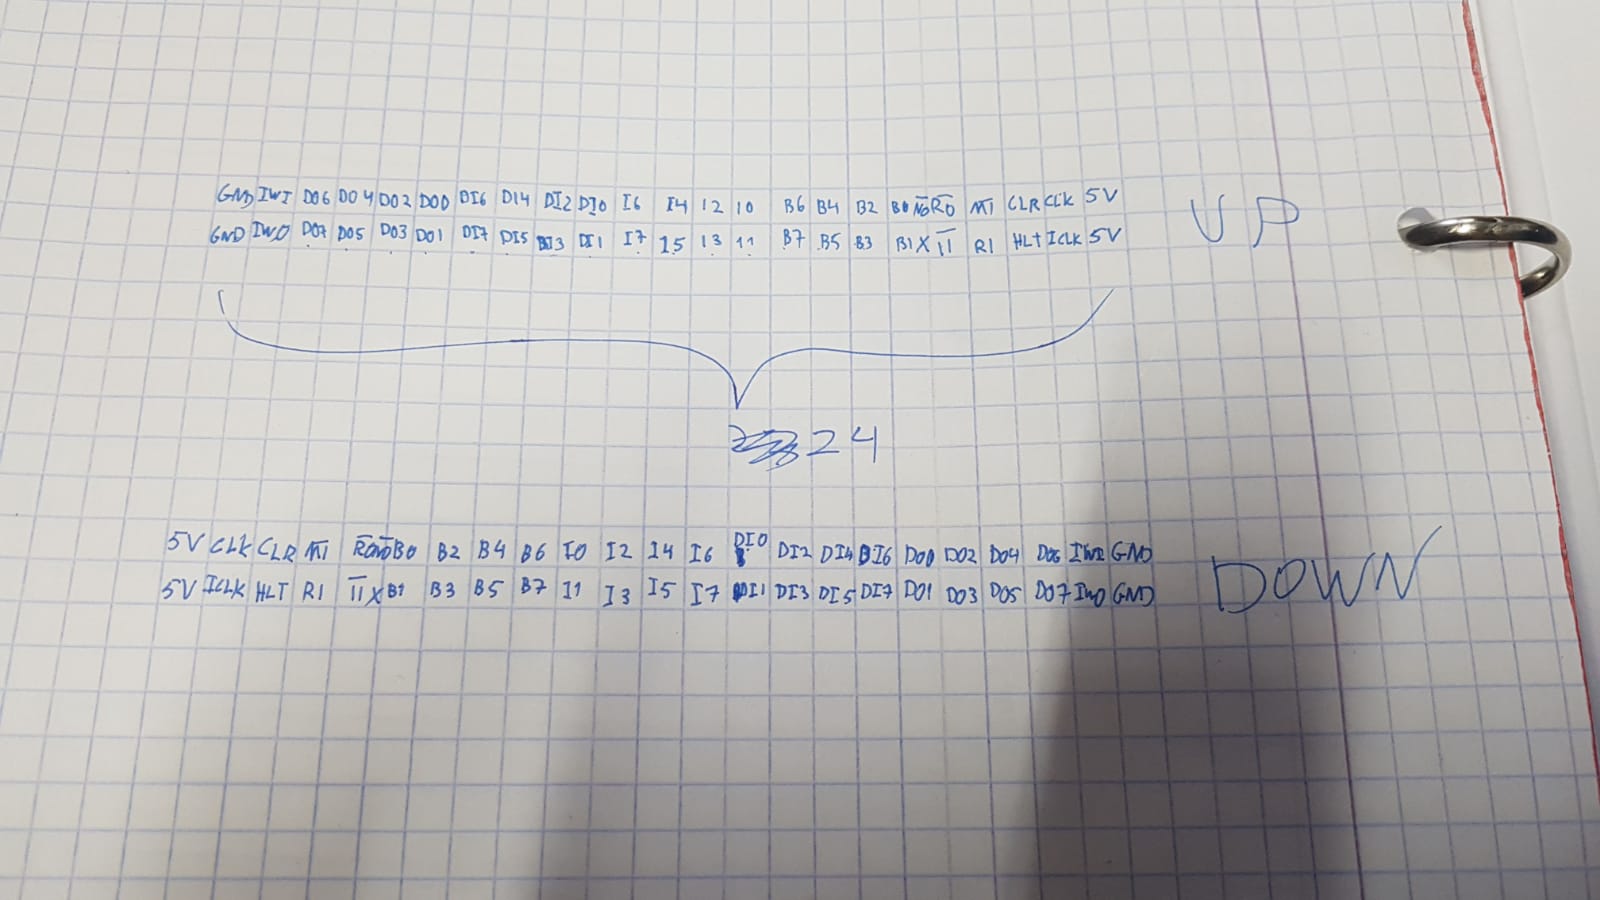 GND IWI D06 D04 D02 D00 DI6 DI4 DI2 DI0 I6 I4 I2 I0 B6 B4 B2 B0 R̅O̅ M̅I̅ CLR CLK 5V
UP
GND IWO D07 D05 D03 D01 DI7 DI5 DI3 DI1 I7 I5 I3 I1 B7 B5 B3 B1 X I̅I̅ RI HLT ICLK 5V
24
5V CLK CLR M̅I̅ R̅O̅ B0 B2 B4 B6 I0 I2 I4 I6 DI0 DI2 DI4 DI6 D00 D02 D04 D06 IWI GND
DOWN
5V ICLK HLT RI I̅I̅ X B1 B3 B5 B7 I1 I3 I5 I7 DI1 DI3 DI5 DI7 D01 D03 D05 D07 IWO GND